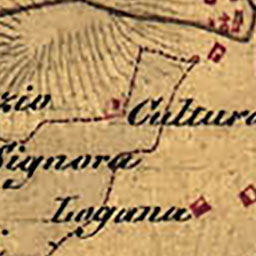 zio
Cultura
Signora
Logana